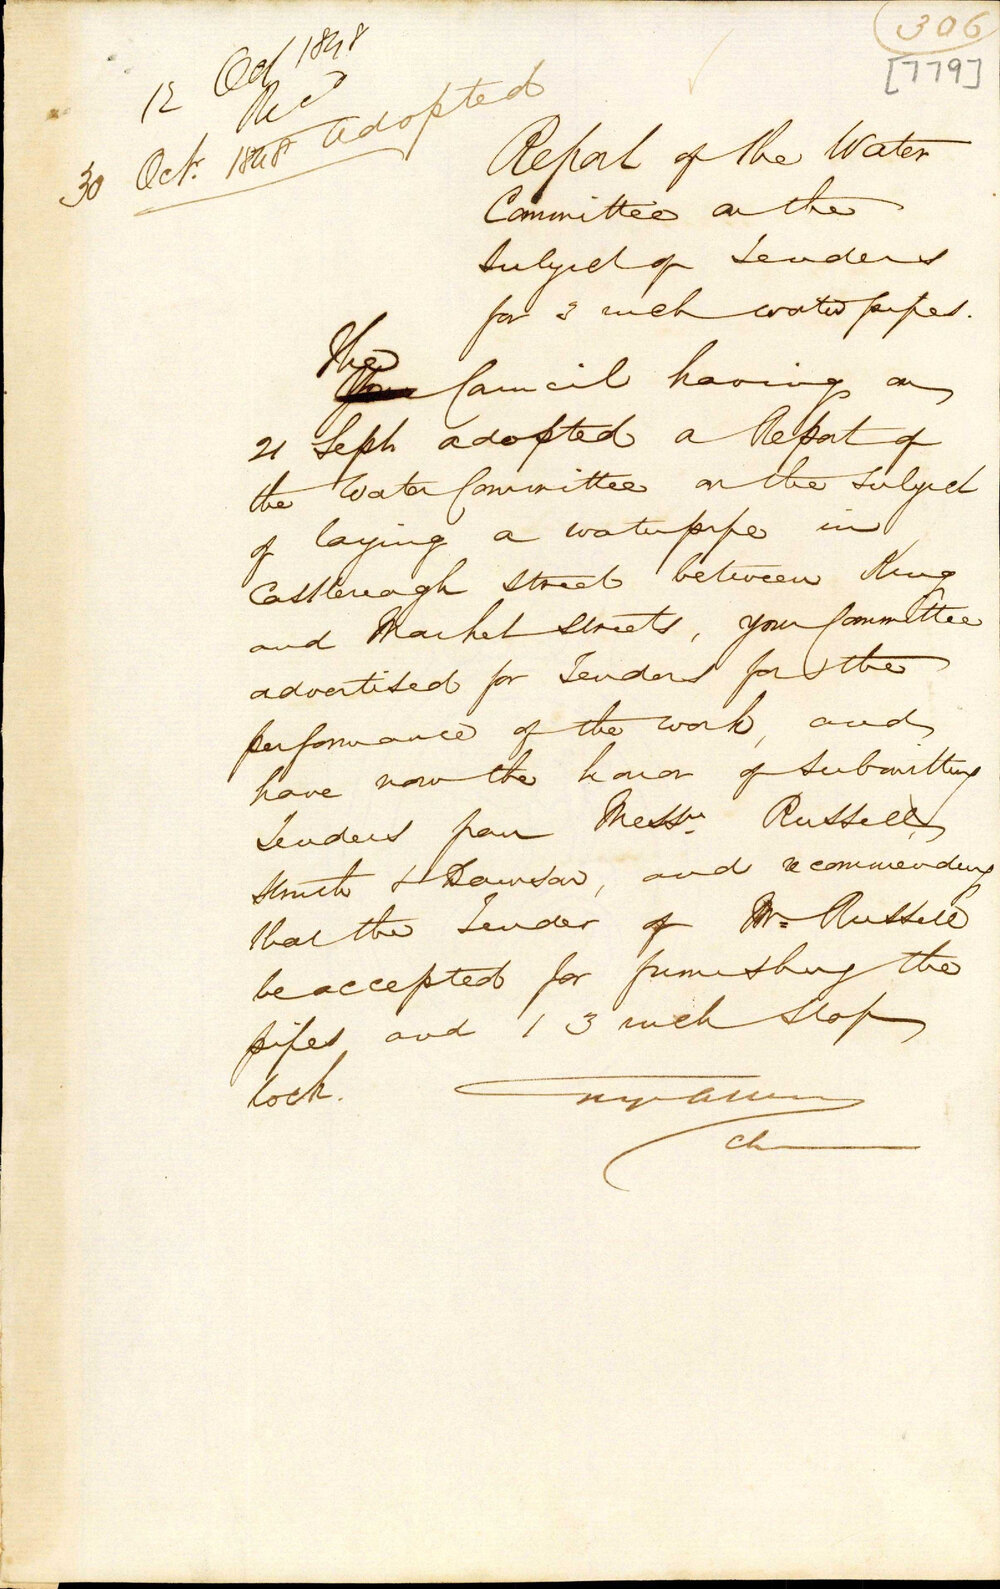 306
[779]
12 Oct 1848
Recd
30 Octr. 1848 adopted
Report of the Water
Committee on the
Subject of Tenders
for 3 inch water pipes.
The
Council having on
21 Septr adopted a Report of
the Water Committee on the subject
of laying a waterpipe in
Castlereagh Street between King
and Market Streets, your Committee
advertised for Tenders for the
performance of the work, and
have now the honor of submitting
Tenders from Messrs Russell,
Smith & Dawson, and recommending
that the Tender of Mr Russell
be accepted for furnishing the
pipes and 1 3 inch Stop
cock.